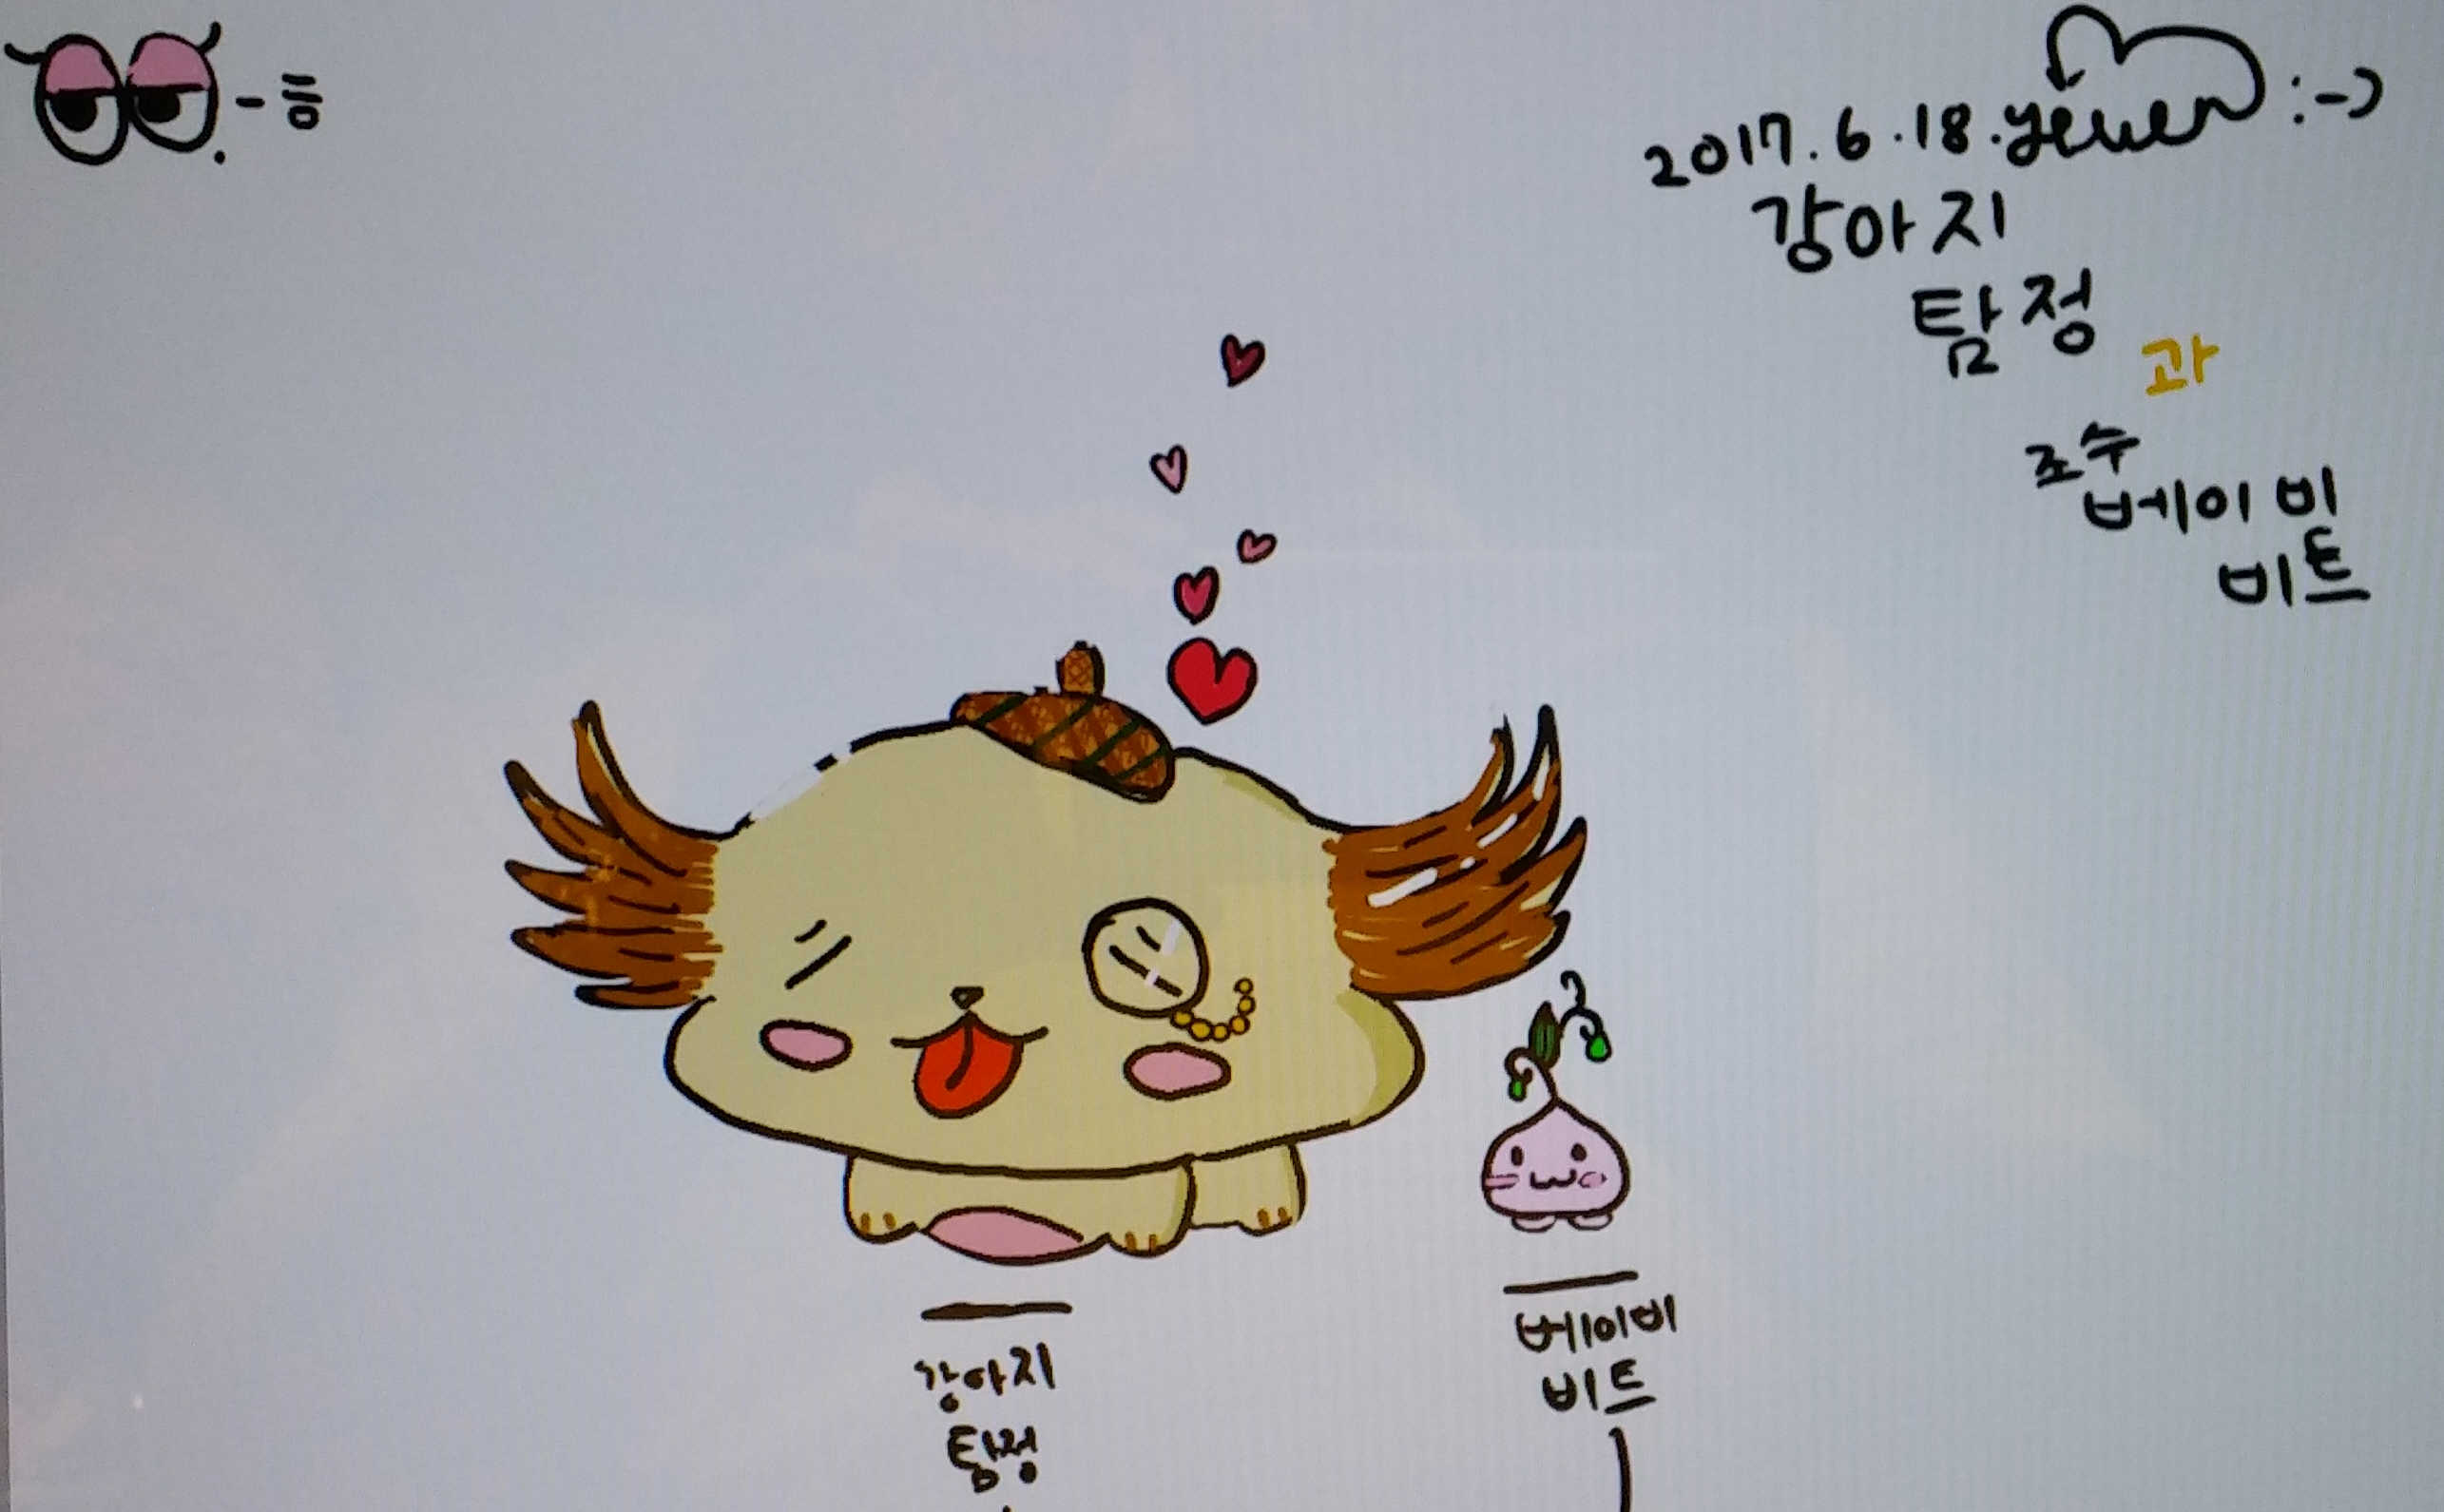 - 흥
2017.6.18.yewen :-)
강아지
탐정
과
조수
베이비
비트
강아지
탐정
베이비
비트